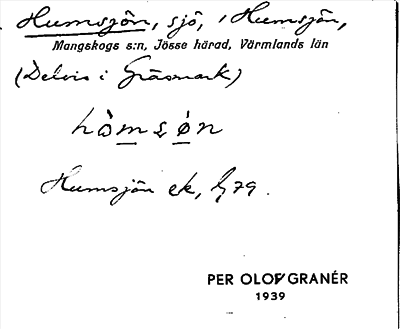 Humsjön, sjö, i Humsjön,
Mangskogs s:n, Jösse härad, Värmlands län
(Delvis i Gräsmark)
hòmsón
Humsjön ek,
PER OLOF GRANÉR
1939